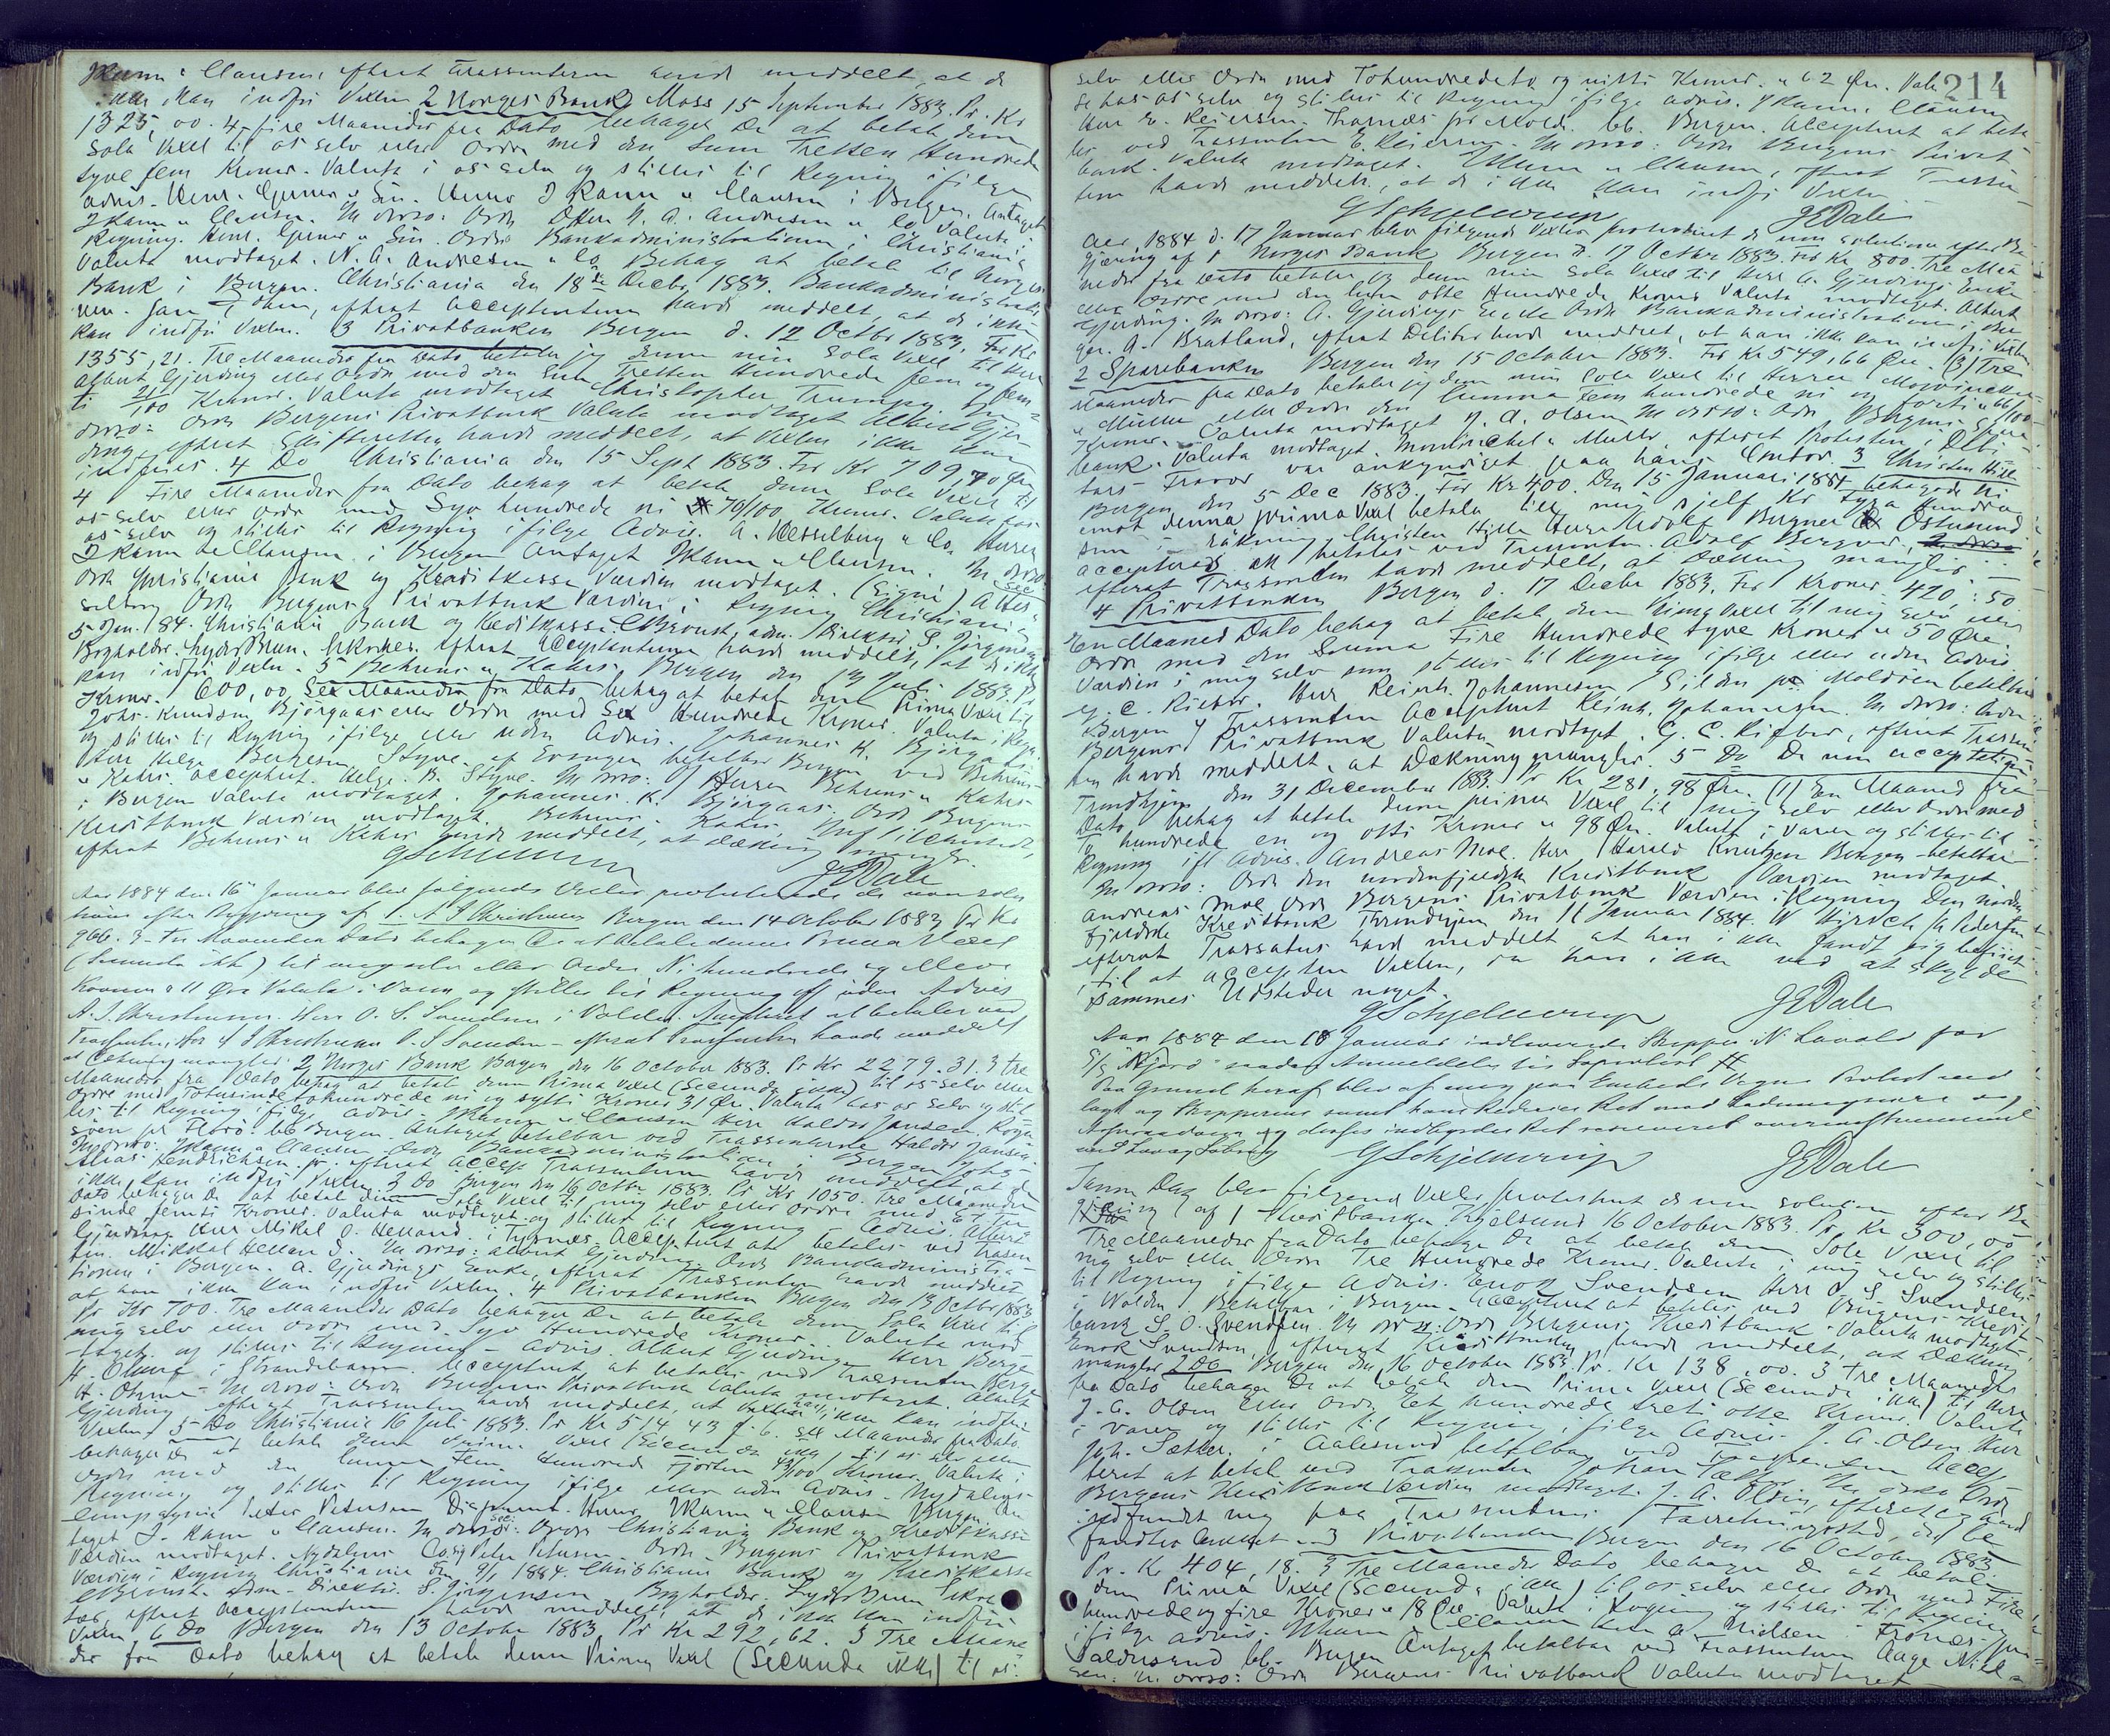 Kann & Clausen, efterat Trassenterne havde meddelt, at de
ikke kan indfri Vexlen 2 Norges Bank Moss 15 September 1883. Pr. Kr
1325,00. 4 fire Maaneder fra Dato behager De at betale denne
Sola Vexel til os selv eller Ordre med den Sum Tretten Hundrede
tyve fem Kroner. Valuta i os selv og stilles til Regning ifølge
advis. Henr. Gerner & Søn. Herrer J Kann & Clausen i Bergen. Antaget
J Kann & Clausen. In dorso: Ordre Hrr N. A. Andresen & Co. Valuta i
Regning. Henr. Gerner & Søn. Ordre Bankadministrationen i Christiania
Valuta modtaget. N. A. Andresen & Co. Behag at betale til Norges
Bank i Bergen. Christiania den 18de Decbr. 1883. Bankadministratio
nen. efterat Acceptanterne havde meddelt, at de ikke
kan indfri Vexlen. 3 Privatbanken Bergen d. 12 Octbr 1883. For Kr
1355,21. Tre Maaneder fra Dato betaler jeg denne min Sola Vexel til Herr
Albert Gjerding eller Ordre med den Sum Tretten Hundrede fem og fem
ti 21/100 Kroner. Valuta modtaget Christopher Trumpy. In
dorso: Ordre Bergens Privatbank Valuta modtaget Albert Gjer-
ding, efterat Skifteretten havde meddelt, at Vexlen ikke kan
indfries. 4 Do Christiania den 15 Sept 1883. For Kr 709,70 Øre
4 Fire Maaneder fra Dato behag at betale denne Sola Vexel til
os selv eller Ordre med Syv hundrede ni 70/100 Kroner. Valuta hos
os selv og stilles til Regning ifølge Advis. A. Hesselberg & Co. Herrer
J Kann & Clausen i Bergen Antaget J Kann & Clausen. In dorso:
Ordre Christiania Bank og Kreditkasse Værdien modtaget. A. Hes
selberg Ordre Bergens Privatbank Værdien i Regning Christiania
5 Jan. 84. Christiania Bank og Kreditkasse. adm. Direktør S. Jørgensen
Bogholder. Lyder Brun. Sekretær. efterat Acceptanterne havde meddelt, at de ikke
kan indfri Vexlen. 5 Behrens & Kahrs. Bergen den Juli 1883. Pr
Kroner. 600,00 Sex Maaneder fra Dato behag at betale denne Prima Vexel til
Johs. Knudsen Bjørgaas eller Ordre med Sex Hundrede Kroner. Valuta i Regn
og stilles til Regning ifølge eller uden Advis. Johannes K. Bjørgaas.
Herr Helge Berthesen Styve. af Evanger betalbar Bergen ved Behrens
& Kahrs. acceptert. Helge B. Styve. In dorso: Herrer Behrens & Kahrs
i Bergen Valuta modtaget. Johannes K. Bjørgaas. Ordre Bergens
Kreditbank Værdien modtaget. Behrens & Kahrs.
efterat Behrens & Kahrs havde meddelt, at dækning mangler.
GSchjelderup JEDale
Aar 1884 den 16 Januar blev følgende Vexler protesterede de non solu
tione efter Begjæring af 1. A J Christensen Bergen den 14 October 1883 Pr Kr
966. 3 - tre Maaneder Dato behager De at betale denne Prima Vexel
(Secunda ikke) til mig selv eller Ordre Ni hundrede og
Kroner & 11 Øre Valuta i Varer og stilles til Regning uden Advis
A. J. Christensen. Herr O. S. Svendsen i Valden. Acceptert at betales ved
Trassenten, Hr A J Christensen O. S Svendsen - efterat Trassenten havde meddelt
at Dækning mangler. 2 Norges Bank Bergen den 16 October 1883. Pr Kr 2279.31. 3 tre
Maaneder fra Dato behag at betale denne Prima Vexel (Secunda ikke) til os selv eller
Ordre med Totusinde tohundrede ni og sytti Kroner 31 Øre. Valuta hos os selv og stil
les til Regning ifølge advis - J Kann & Clausen Herr Haldor Jansen.
betalbar ved Trassenterne Haldor Jansen.
In dorso: J Kann & Clausen Ordre Bankadministrationen i Bergen Johs
efterat Accept Trassenterne havde meddelt, at de
ikke kan indfri Vexlen. 3 Do Bergen den 16 Octbr 1883. Pr Kr 1050. Tre Maaneder
Dato behager De at betale denne Sola Vexel til mig selv eller Ordre med Et tu
sinde femti Kroner. Valuta modtaget og stilles til Regning - Advis. Albert
Gjerding. Herr Mikal O. Helland. i Tysnæs. Acceptert at betales ved Trassen
ten. Mikkal Helland. In dorso: Albert Gjerding Ordre Bankadministra
tionen i Bergen. A. Gjerdings Enke, efterat Trassenten havde meddelt
at han ikke kan indfri Vexlen. 4 Privatbanken Bergen den 13 Octbr 1883
Pr Kr 700. Tre Maaneder Dato behager De at betale denne Sola Vexel til
mig selv eller Ordre med Syv Hundrede Kroner. Valuta mod
taget. og stilles til Regning - Advis. Albert Gjerding. Herr Berge
H. i Strandebarm. Acceptert at betales ved Trassenten Berge
H. - In dorso: Ordre Bergens Privatbank Valuta modtaget. Albert
Gjerding efterat Trassenten havde meddelt, at han ikke kan indfri
Vexlen. 5 Do Christiania 16 Juli 1883. Pr Kr 514 43 f. 6. sex Maaneder fra Dato
behager De at betale denne Prima Vexel (Secunda ikke) til os selv eller
Ordre med den Summa Fem Hundrede Fjorten 43/100 Kroner. Valuta i
Regning og stilles til Regning ifølge eller uden Advis. Nydalens
Compagnie Peter Petersen Disponent. Herrer J Kann & Clausen Bergen. An
taget J. Kann & Clausen. In dorso: Ordre Christiania Bank og Kreditkasse
Værdien modtaget. Nydalens Co. Peter Petersen. Ordre Bergens Privatbank
Værdien i Regning Christiania den 9/1 1884. Christiania Bank og Kreditkasse
adm. Direktør. S. Jørgensen Bogholder. Lyder Brun Sekre
tær, efterat Acceptanterne havde meddelt, at de ikke kan indfri
Vexlen 6 Do Bergen den 13 October 1883. Pr Kr 292,62. 3 Tre Maane
der fra Dato behag at betale denne Prima Vexel (Secunda ikke) til os
214
selv eller Ordre med Tohundredeto og nitti Kroner. & 62 Øre. Valu
ta hos os selv og stilles til Regning ifølge advis. J Kann & Clausen
Herr E. Reiersen. pr Molde. bb. Bergen. Acceptert at beta
les ved Trassenten E. Reiersen. In dorso: Ordre Bergens Privat
bank. Valuta modtaget. J Kann & Clausen, efterat Trassen
tene havde meddelt, at de ikke kan indfri Vexlen
GSchjelderup JEDale
Aar 1884 d. 17 Januar blev følgende Vexler protesteret de non solutione efter Be
gjæring af 1 Norges Bank Bergen d. 17 Octbr 1883. For Kr 800. Tre Maa
neder fra Dato betaler jeg denne min Sola Vexel til Herr A. Gjerdings Enke
eller Ordre med den Sum Otte Hundrede Kroner Valuta modtaget. Albert
Gjerding. In dorso: A. Gjerdings Enke Ordre Bankadministrationen i Ber
gen. A. Bratland, efterat Debitor havde meddelt, at han ikke kan indfri Vexlen
2 Sparebanken Bergen den 15 October 1883. For Kr 549,66 Øre. (3) Tre
Maaneder fra Dato betaler jeg denne min Sola Vexel til Herrer
& Müller eller Ordre den Summa Fem hundrede ni og førti & 66/100
Kroner. Valuta modtaget N. A. Olsen In dorso: Ordre Bergens Spare
bank. Valuta modtaget. & Müller, efterat Protesten i Debi
tors Fravær var ankyndiget paa hans Contor. 3 Christen
Bergen den 5 Dec 1883. För Kr 400. Den 15 Januari 1884 behagade Ni
emot denna prima Vexel betala till mig sjelf Kr Fyra hundra
som i räkning. Christen Herr Adolf Bergner Östersund
accepteras att betalas ved Trassenten. Adolf Bergner,
efterat Trassenten havde meddelt, at Dækning mangler. -
4 Privatbanken Bergen d. 17 Decbr 1883. For Kroner 420:50
En Maaned Dato behag at betale denne Prima Vexel til mig selv eller
Ordre med den Summa Fire Hundrede tyve Kroner & 50 Øre
Værdien i mig selv som stilles til Regning ifølge eller uden Advis
G. C. Rieber. Herr Reinh. Johannesen, Gilden pr Moldøen betalbar
i Bergen Trassenten Acceptert Reinh. Johannesen. In dorso: Ordre
Bergens Privatbank Valuta modtaget. G. C. Rieber, efterat Trassen
ten havde meddelt, at Dækning mangler. 5 Do De non acceptatione
Trondhjem den 31 December 1883. Pr Kr 281,98 Øre. (1) En Maaned fra
Dato behag at betale denne prima Vexel til mig selv eller Ordre med
To hundrede en og otti Kroner & 98 Øre. Valuta i Varer og stilles til
Regning ifl Advis. Andreas Moe. Herr Harald Knutzen Bergen betalbar
In dorso: Ordre den nordenfjeldske Kreditbank Værdien modtaget.
Andreas Moe Ordre Bergens Privatbank Værdien i Regning Den norden
fjeldske Kreditbank Trondhjem den 11 Januar 1884. W Hirsch
efterat Trassatus havde meddelt, at han ikke fandt sig beføiet
til at acceptere Vexlen, da han ikke ved at skylde
sammes Udsteder noget.
GSchjelderup JEDale
Aar 1884 den 18 Januar indleverede Skipper N. for
S/S saadan Anmeldelse til Søprotest
Paa Grund heraf blev af mig paa Embeds Vegne Protest ned
lagt og Skipperens samt hans Rederies Ret mod Ladningseiere og
Assuradører og øvrige vedkommende Ret reserveret overensstemmende
med Lovog Søbrug GSchjelderup JEDale
Samme Dag blev følgende Vexler protesteret de non solutione efter Be
gjæring af 1 Kreditbanken 16 October 1883. Pr. Kr 300,00
Tre Maaneder fra Dato behager De at betale denne Sola Vexel til
mig selv eller Ordre Tre Hundrede Kroner. Valuta i mig selv og stilles
til Regning ifølge Advis. Enok Svendsen Herr O. S. Svendsen
i Valden. Betalbar i Bergen - Acceptert at betales ved Bergens Kredit
bank S. O. Svendsen. In dorso: Ordre Bergens Kreditbank - Valuta modtaget.
Enok Svendsen, efterat Kreditbanken havde meddelt, at Dækning
mangler 2 Do Bergen den 16 October 1883. Pr. Kr 138,00. 3 tre Maaneder
fra Dato behager De at betale denne Prima Vexel (Secunda ikke) til Herr
J. A. Olsen eller Ordre Et hundrede treti otte Kroner. Valuta
i varer og stilles til Regning ifølge Advis. J. A. Olsen Herr
Joh. Sætter. i Aalesund betalbar ved Trassenten Accep
teret at betale ved Trassenten Johan Sætter In dorso Ordre
Bergens Kreditbank Værdien modtaget. J. A. Olsen, efterat jeg havde
indfundet mig paa Trassentens Forretningssted, der
fandtes lukket. 3 Privatbanken Bergen den 16 October 1883
Pr. Kr 404,18. 3 Tre Maaneder Dato behager De at betale
denne Prima Vexel (Secunda ikke) til os selv eller Ordre med Fire
hundrede og fire Kroner & 18 Øre Valuta i Regning og stilles til Regning
ifølge Advis. J Kann & Clausen Herr A. Nielsen
bb. Bergen Antaget betalbar ved Trassenterne Aage Niel
sen. In dorso: Ordre Bergens Privatbank Valuta modtaget